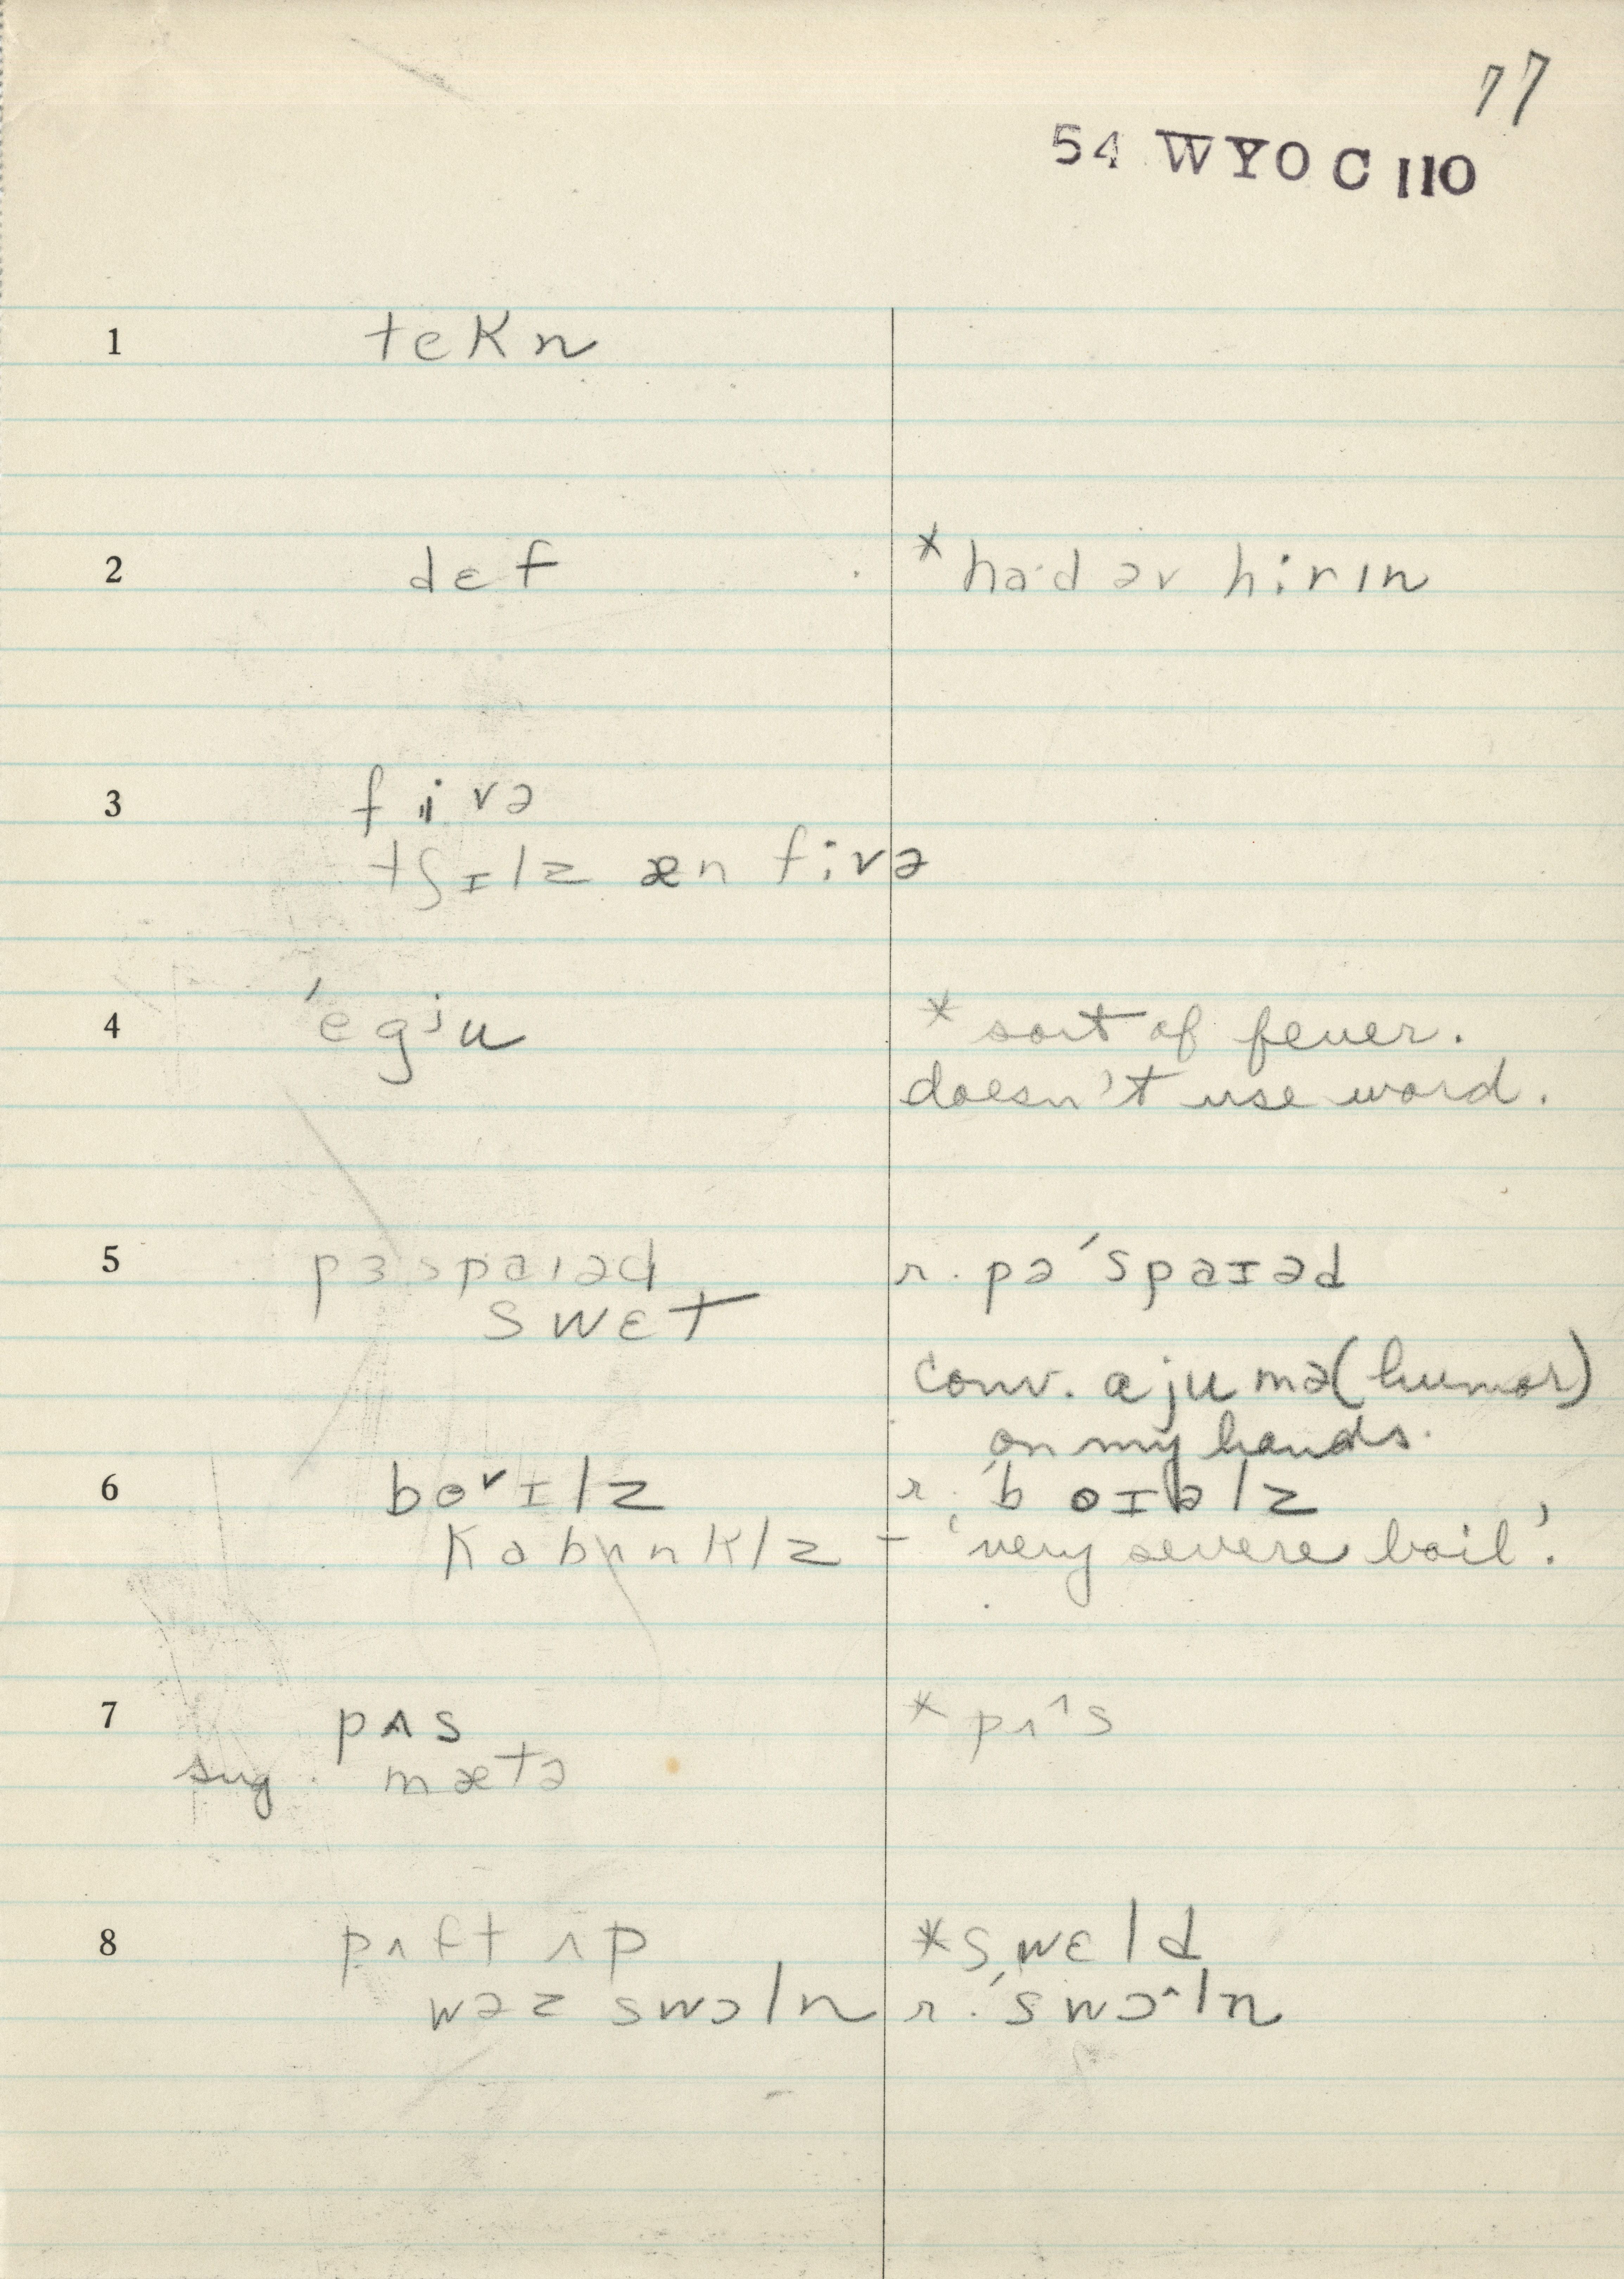 77
54 WYO C 110
1 tekn
2 dɛf * ha·d əv hirɪn
3 fivə
tʃɪlz æn fivə
4 ˈegju * sort of fever.
doesn't use word.
5 pɜspaɪəd r. pəˈspaɪəd
swɛt
conv. ajumə (humor)
on my hands.
6 bo˅ɪlz r. ˈboɪəlz
kabʌnklz – 'very severe boil'.
7 pʌs * pʌ^s
sug. mætə
8 pʌft ʌp * swɛld
wəz swɔln r. ˈswɔ^ln